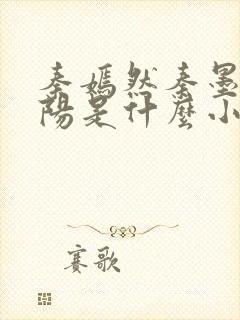 秦嫣然秦墨
陽是什麼小
賽歌